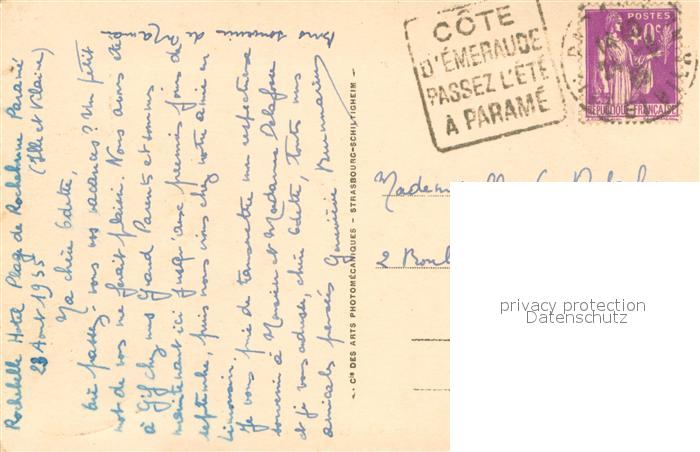 Rochebelle Hotel Plage de Rochebonne Paramé
23 Août 1935 (Ille et Vilaine)
Ma chère Odette,
Où passez-vous vos vacances? Un petit
mot de vous me ferait plaisir. Nous avons été
à Gif chez mes Grand Parents et sommes
maintenant ici jusqu'aux premiers jours de
septembre, puis nous irons chez notre amie en
Limousin.
Je vous prie de transmettre mon respectueux
souvenir à Monsieur et Madame Delafosse
et je vous adresse, chère Odette, toutes mes
amicales pensées Geneviève
Bons souvenirs
de Maman
CÔTE
D'ÉMERAUDE
PASSEZ L'ÉTÉ
A PARAMÉ
POSTES
40c
RÉPUBLIQUE FRANÇAISE
Cie DES ARTS PHOTOMÉCANIQUES - STRASBOURG-SCHILTIGHEIM -
Mademoiselle
2 Boul
privacy protection
Datenschutz